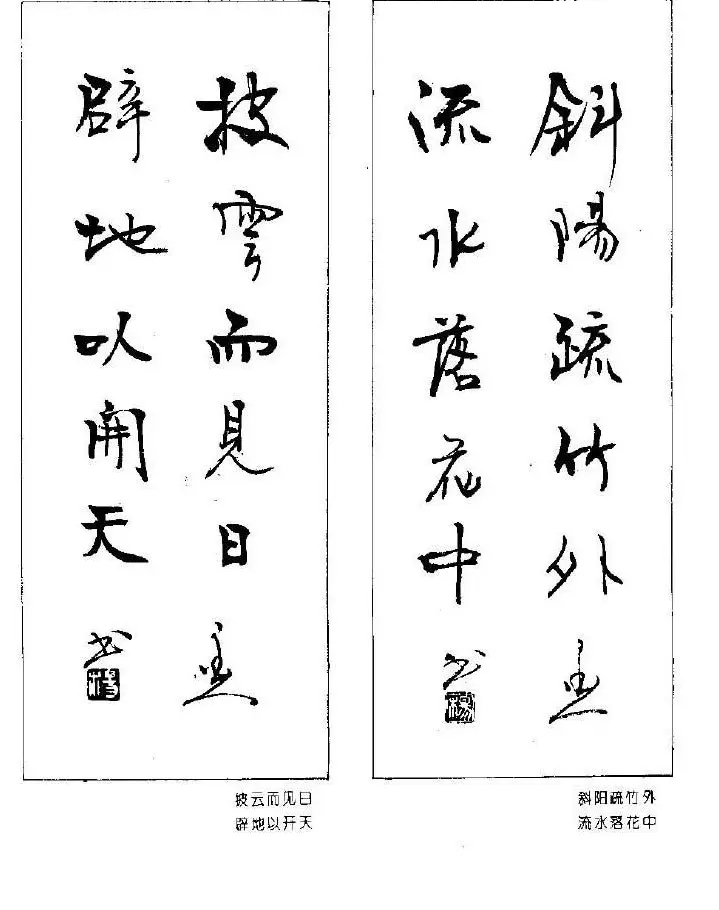 斜陽疏竹外
流水落花中
书
披雲而見日
辟地以開天
书
斜阳疏竹外
流水落花中
披云而见日
辟地以开天